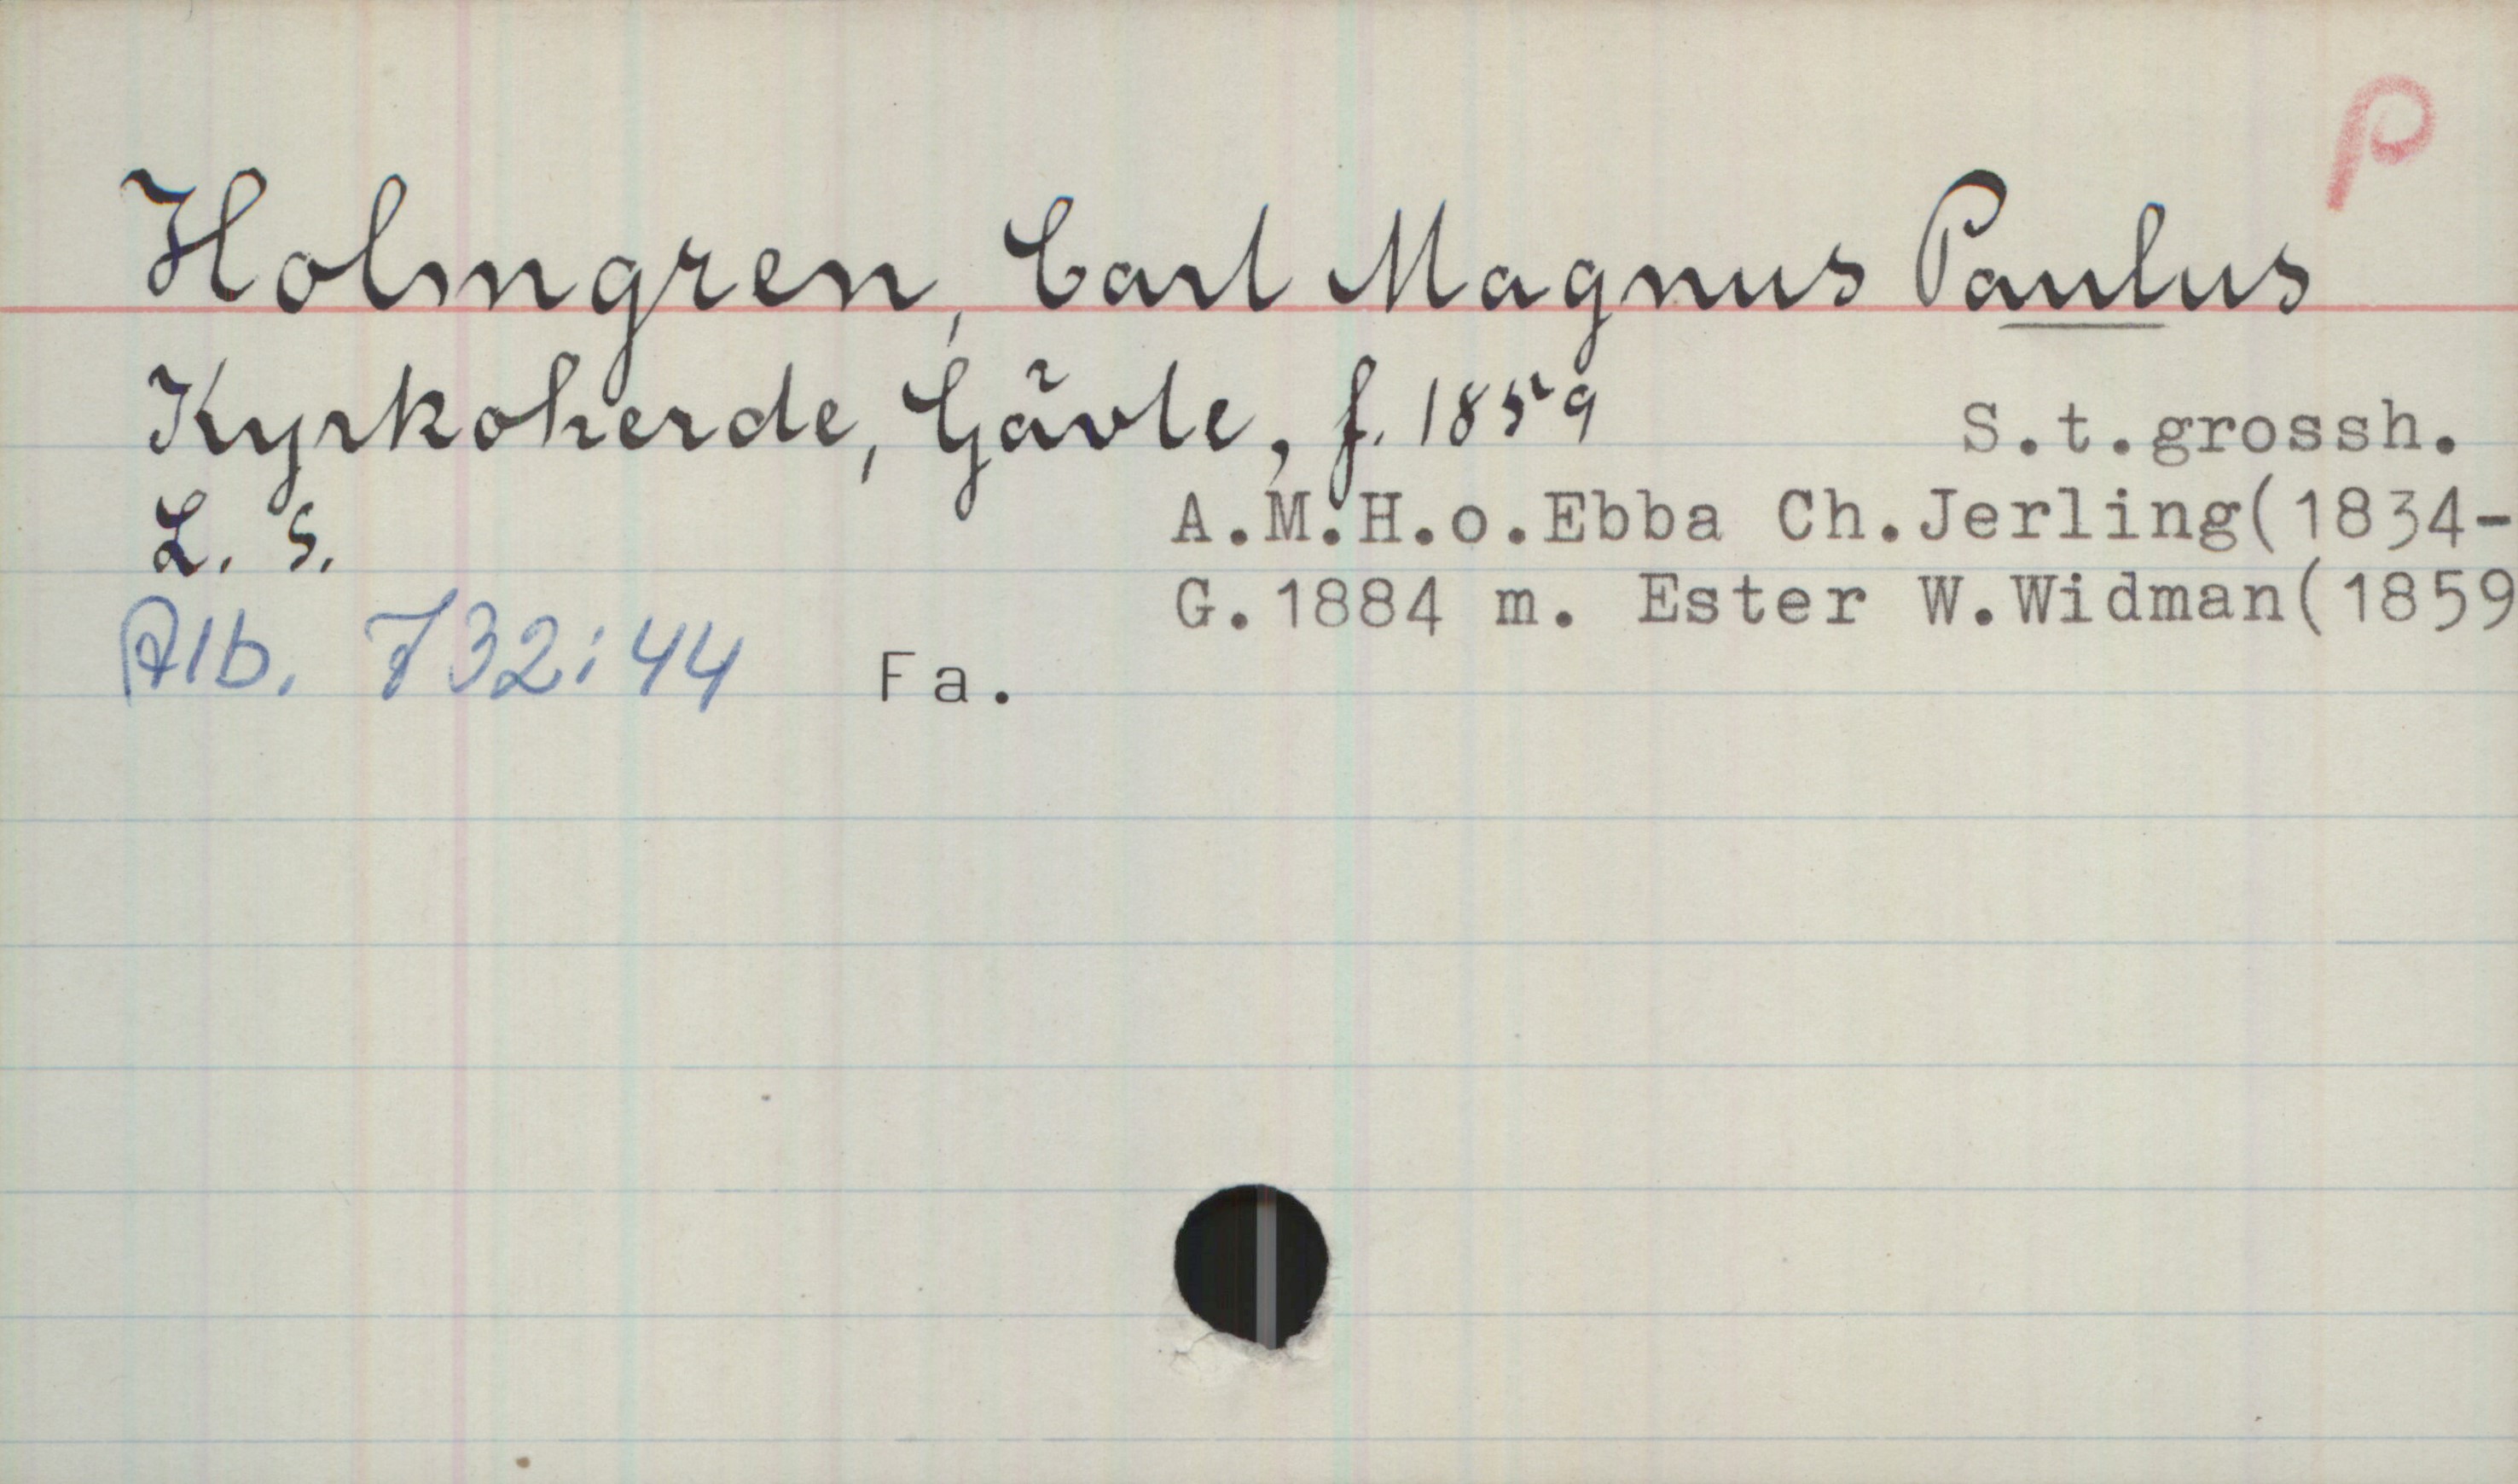 P
Holmgren, Carl Magnus Paulus
Kyrkoherde, Gävle, f. 1859 S.t.grossh.
L. S. A.M.H.o.Ebba Ch.Jerling(1834-
G.1884 m. Ester W.Widman(1859
Alb. 732:44 Fa.